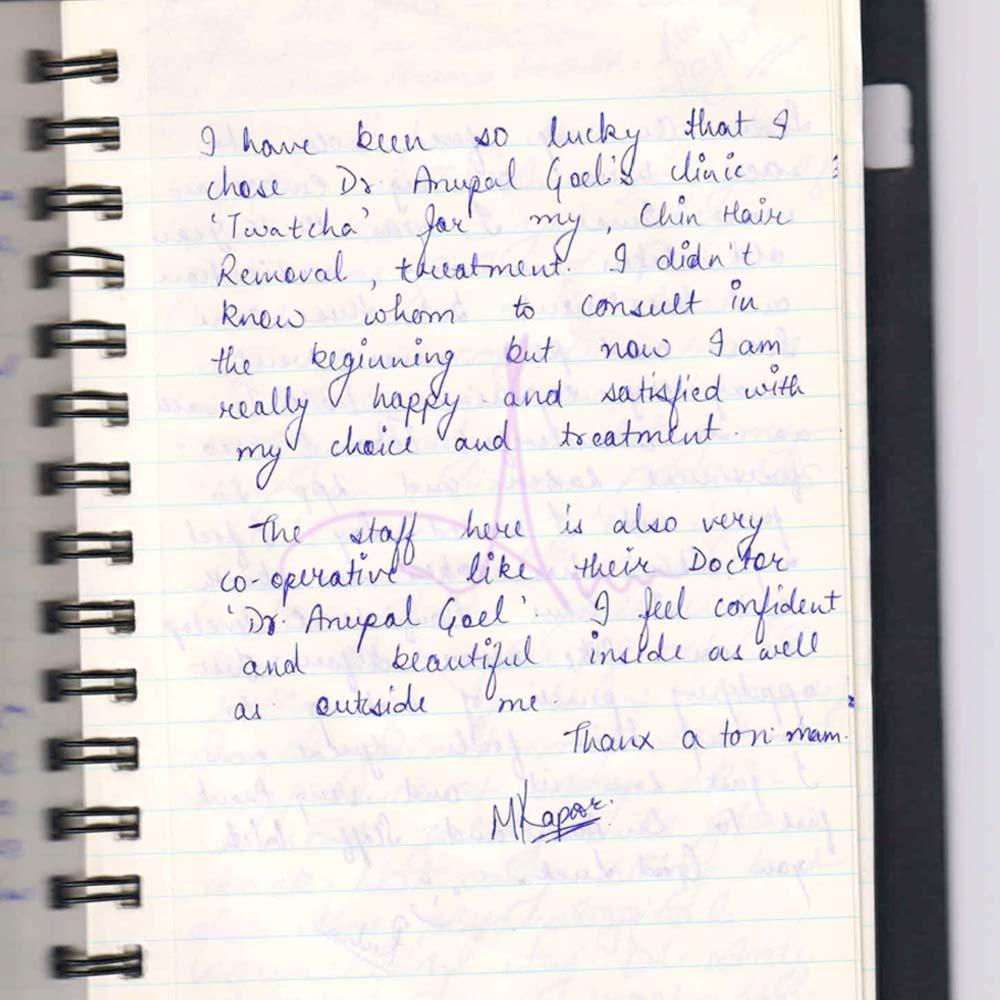 I have been so lucky that I
chose Dr. Anupal Goel's clinic
'Twatcha' for my, Chin Hair
Removal, treatment. I didn't
know whom to consult in
the beginning but now I am
really happy and satisfied with
my choice and treatment.
The staff here is also very
co-operative like their Doctor
'Dr. Anupal Goel'. I feel confident
and beautiful inside as well
as outside me.
Thanx a ton mam.
MKapoor.